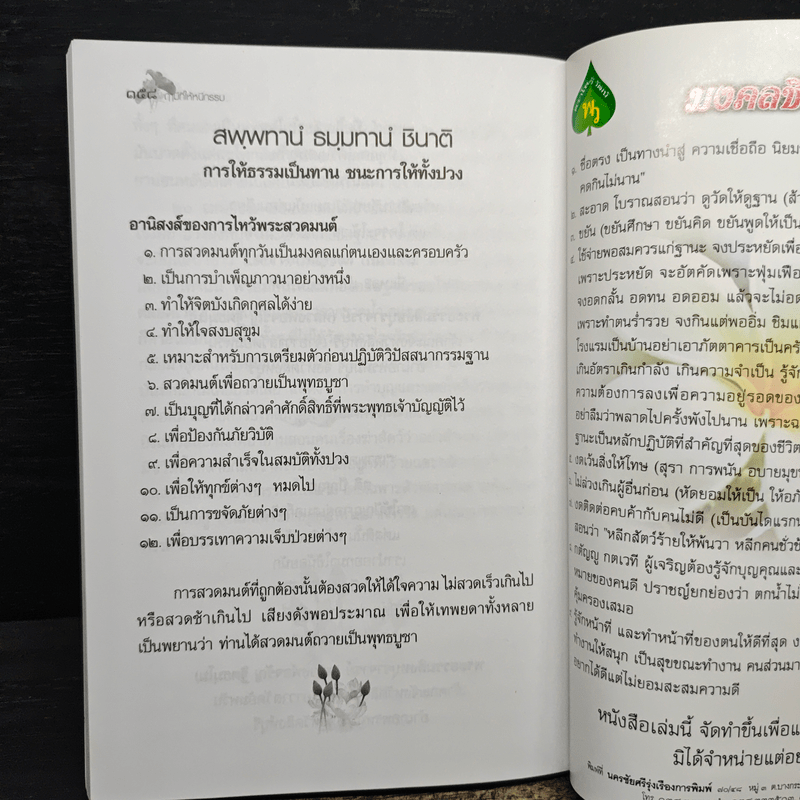 ๑๕๘
สพฺพทานํ ธมฺมทานํ ชินาติ
การให้ธรรมเป็นทาน ชนะการให้ทั้งปวง
อานิสงส์ของการไหว้พระสวดมนต์
๑. การสวดมนต์ทุกวันเป็นมงคลแก่ตนเองและครอบครัว
๒. เป็นการบำเพ็ญภาวนาอย่างหนึ่ง
๓. ทำให้จิตบังเกิดกุศลได้ง่าย
๔. ทำให้ใจสงบสุขุม
๕. เหมาะสำหรับการเตรียมตัวก่อนปฏิบัติวิปัสสนากรรมฐาน
๖. สวดมนต์เพื่อถวายเป็นพุทธบูชา
๗. เป็นบุญที่ได้กล่าวคำศักดิ์สิทธิ์ที่พระพุทธเจ้าบัญญัติไว้
๘. เพื่อป้องกันภัยวิบัติ
๙. เพื่อความสำเร็จในสมบัติทั้งปวง
๑๐. เพื่อให้ทุกข์ต่างๆ หมดไป
๑๑. เป็นการขจัดภัยต่างๆ
๑๒. เพื่อบรรเทาความเจ็บป่วยต่างๆ
การสวดมนต์ที่ถูกต้องนั้นต้องสวดให้ได้ใจความ ไม่สวดเร็วเกินไป
หรือสวดช้าเกินไป เสียงดังพอประมาณ เพื่อให้เทพยดาทั้งหลาย
เป็นพยานว่า ท่านได้สวดมนต์ถวายเป็นพุทธบูชา
มงคลชี
๑. ซื่อตรง เป็นทางนำสู่ ความเชื่อถือ นิยม
คดกินไม่นาน"
๒. สะอาด โบราณสอนว่า ดูวัดให้ดูฐาน (ส้
๓. ขยัน (ขยันศึกษา ขยันคิด ขยันพูดให้เป็น
๔. ใช้จ่ายพอสมควรแก่ฐานะ จงประหยัดเพื่อ
เพราะประหยัด จะอัตคัดเพราะฟุ่มเฟือ
จงอดกลั้น อดทน อดออม แล้วจะไม่อด
เพราะทำตนร่ำรวย จงกินแต่พออิ่ม ชิมแ
โรงแรมเป็นบ้านอย่าเอาภัตตาคารเป็นครั
เกินอัตราเกินกำลัง เกินความจำเป็น รู้จัก
ความต้องการลงเพื่อความอยู่รอดของ
อย่าลืมว่าพลาดไปครั้งพังไปนาน เพราะฉ
ฐานะเป็นหลักปฏิบัติที่สำคัญที่สุดของชีวิต
งดเว้นสิ่งให้โทษ (สุรา การพนัน อบายมุข
ไม่ล่วงเกินผู้อื่นก่อน (หัดยอมให้เป็น ให้อภั
งดติดต่อคบค้ากับคนไม่ดี (เป็นบันไดแรก
สอนว่า "หลีกสัตว์ร้ายให้พ้นวา หลีกคนชั่ว
กตัญญู กตเวที ผู้เจริญต้องรู้จักบุญคุณและ
หมายของคนดี ปราชญ์ยกย่องว่า ตกน้ำไม่
คุ้มครองเสมอ
รู้จักหน้าที่ และทำหน้าที่ของตนให้ดีที่สุด ง
ทำงานให้สนุก เป็นสุขขณะทำงาน คนส่วนมา
อยากได้ดีแต่ไม่ยอมสะสมความดี
หนังสือเล่มนี้ จัดทำขึ้นเพื่อแ
มิได้จำหน่ายแต่อย
พิมพ์ที่ นครชัยศรีรุ่งเรืองการพิมพ์ ๗๐/๔๘ หมู่ ๓ ต.บางกระ